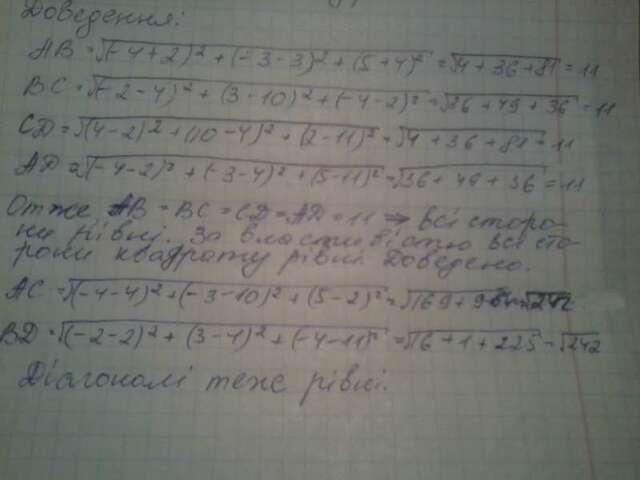 Доведення:
AB = √(-4+2)² + (-3-3)² + (5+4)² = √4+36+81 = 11
BC = √(-2-4)² + (3-10)² + (-4-2)² = √36+49+36 = 11
CD = √(4-2)² + (10-4)² + (2-11)² = √4+36+81 = 11
AD = √(-4-2)² + (-3-4)² + (5-11)² = √36+49+36 = 11
Отже AB = BC = CD = AD = 11 ⇒ всі сторо-
ни рівні. За властивістю всі сто-
рони квадрату рівні. Доведено.
AC = √(-4-4)² + (-3-10)² + (5-2)² = √242
BD = √(-2-2)² + (3-4)² + (-4-11)² = √16+1+225 = √242
Діагоналі теж рівні.